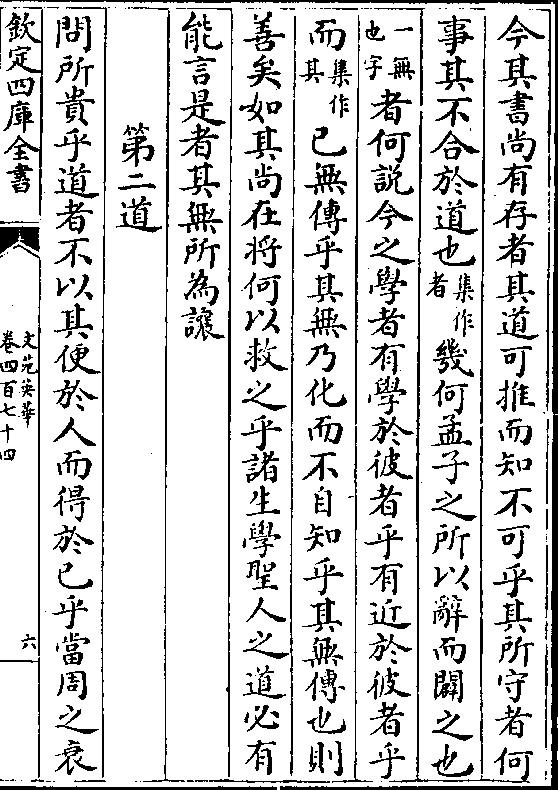 今其書尚有存者其道可推而知不可乎其所守者何
事其不合於道也集作者幾何孟子之所以辭而闢之也
一無也字者何説今之學者有學於彼者乎有近於彼者乎
而集作其已無傳乎其無乃化而不自知乎其無傳也則
善矣如其尚在将何以救之乎諸生學聖人之道必有
能言是者其無所為讓
第二道
問所貴乎道者不以其便於人而得於已乎當周之衰
欽定四庫全書
文苑英華
卷四百七十四
六